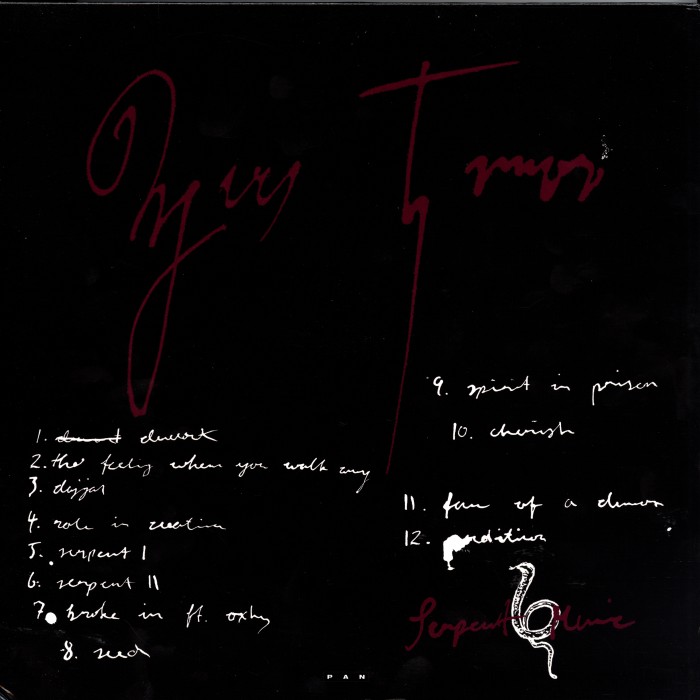 Yves Tumor
9. spirit in prison
10. cherish
1. devout
2. the feeling when you walk away
3. dajjal
4. role in creation
5. serpent I
6. serpent II
7. broke in ft. oxhy
8. seed
11. face of a demon
12. perdition
Serpent Music
PAN